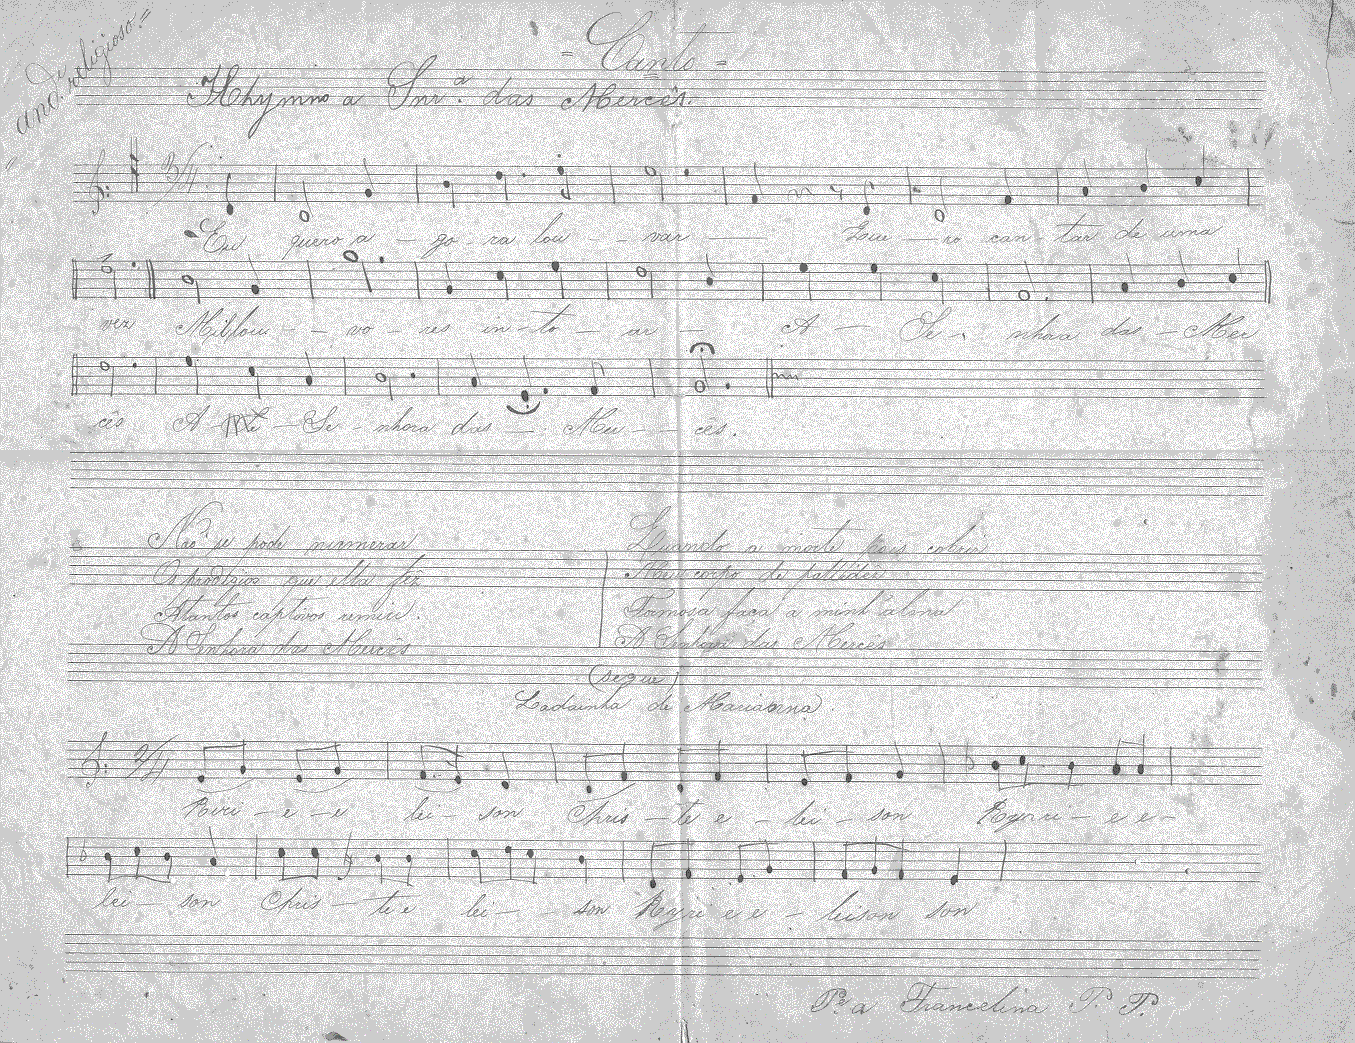 And. religioso!!
= Canto =
Hhymno a Snrª. das Mercês.
3/4
Eu quero a - go - ra lou - - var — Que — ro can tar de uma
vez Mil lou - - vo - res en - to - ar — A — Se - nhora das - Mer
cês A - Se - nhora das - Mer - - cês.
Não se pode numerar
Os prodigios que ella fêz
A tantos captivos remiu.
A Senhora das Mercês
Quando a morte pois cobrir
Meu corpo de pallidez
Formosa faça a minh'alma
A Senhora das Mercês
(segue)
Ladainha de Marianna.
2/4
Kiri - e - e lei - son Chris - te e - lei - son Kyrii - e e -
lei - son Chris - te e lei - - son Kyri e e - leison son
Pª a Francelina P. P.